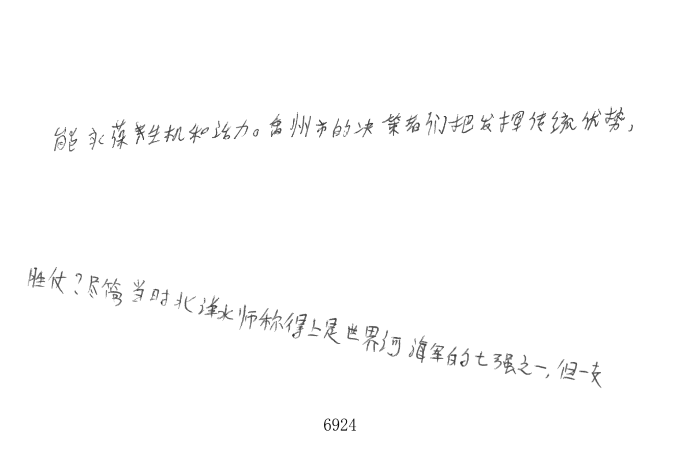 能永葆其生机和活力。台州市的决策者们把发挥传统优势,
胜仗?尽管当时北洋水师称得上是世界河海军的七强之一,但一支
6924